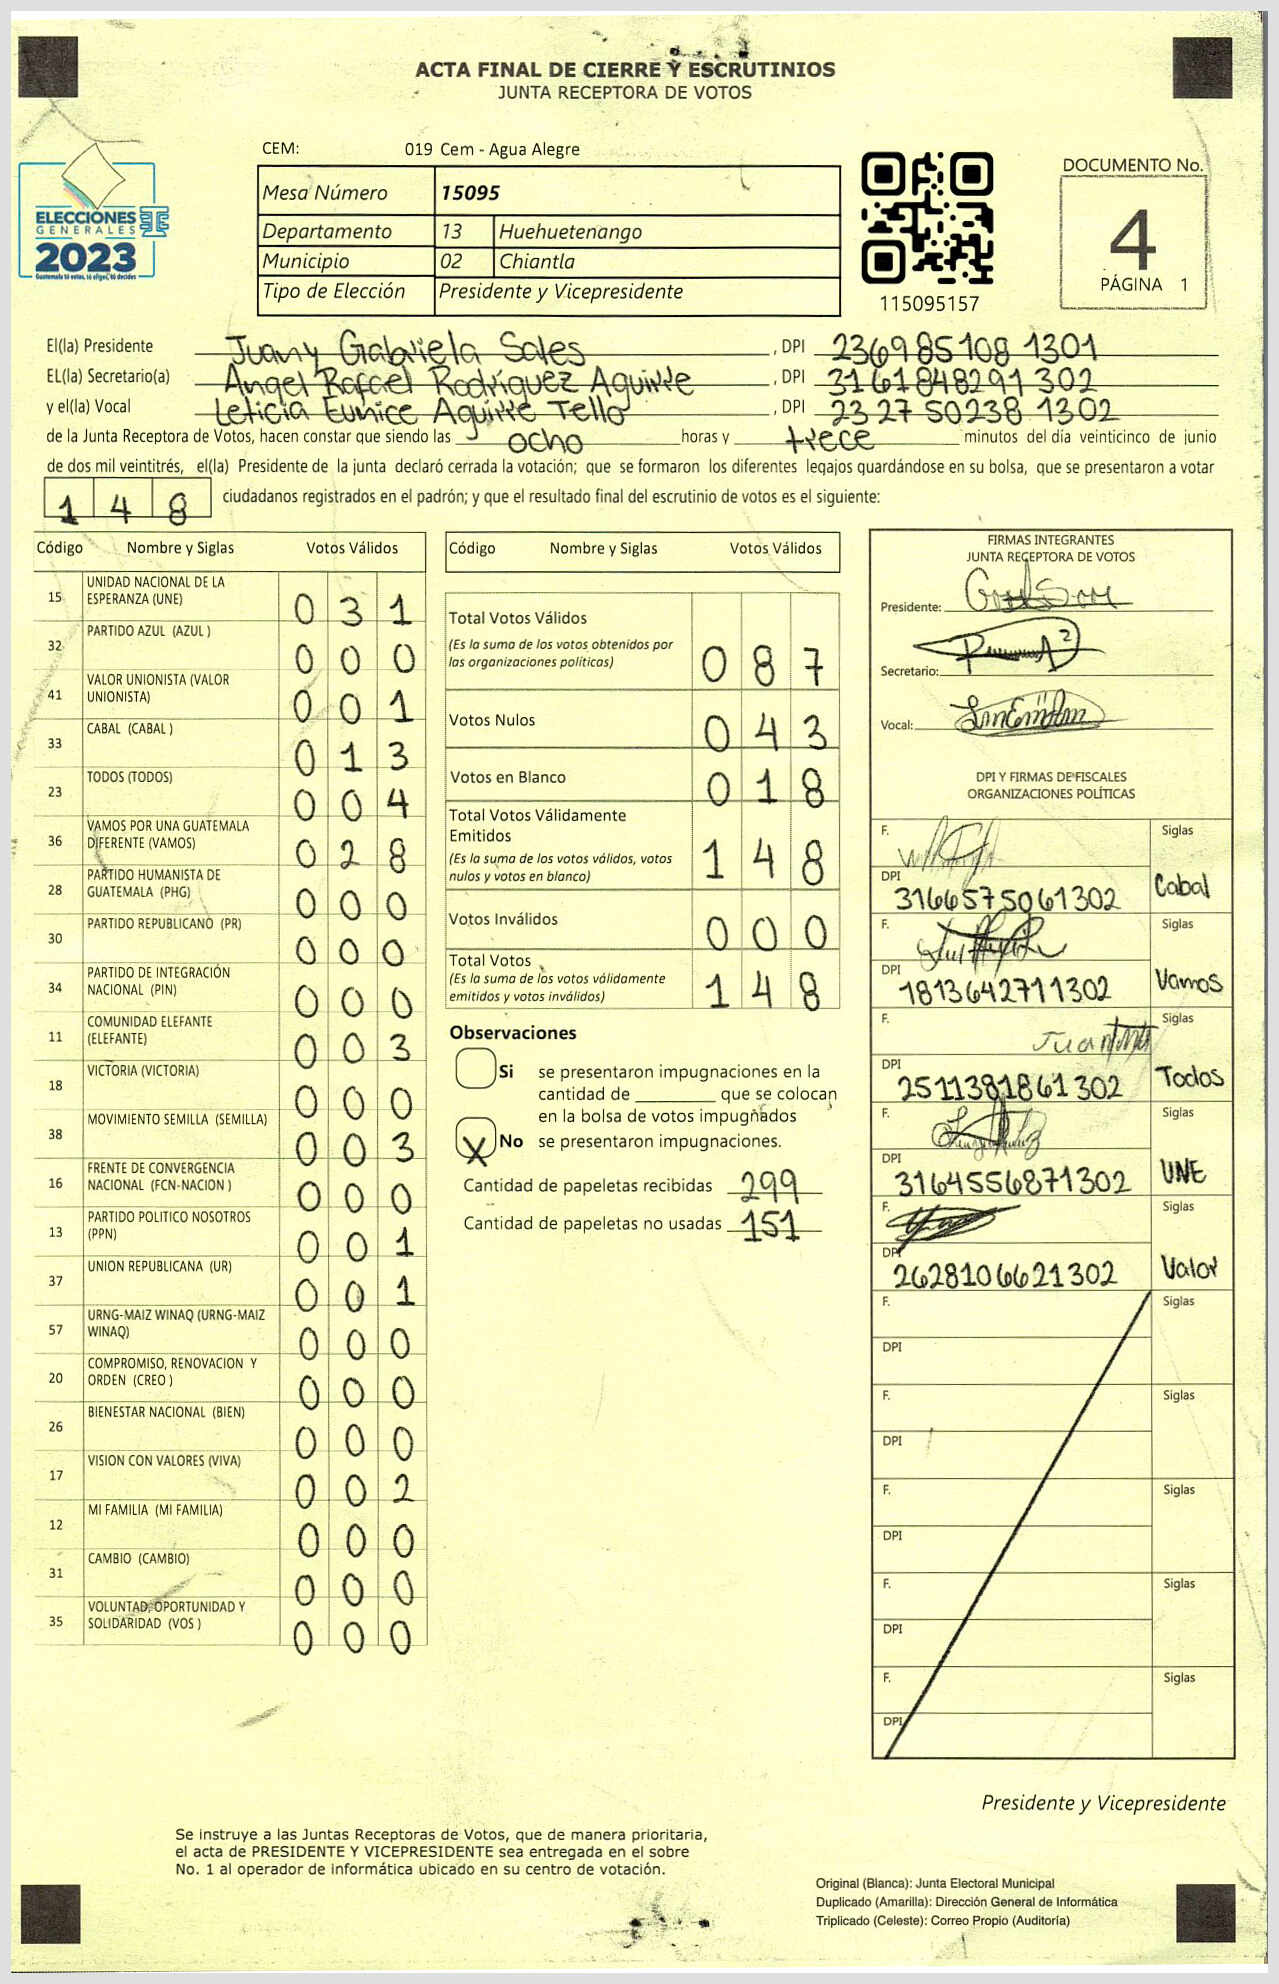 ACTA FINAL DE CIERRE Y ESCRUTINIOS
JUNTA RECEPTORA DE VOTOS
ELECCIONES
GENERALES
2023
CEM: 019 Cem - Agua Alegre
Mesa Número 15095
Departamento 13 Huehuetenango
Municipio 02 Chiantla
Tipo de Elección Presidente y Vicepresidente
115095157
DOCUMENTO No.
4
PÁGINA 1
El(la) Presidente Juany Gabriela Sales , DPI 236985108 1301
EL(la) Secretario(a) Angel Rafael Rodríguez Aguirre , DPI 3161848291302
y el(la) Vocal Leticia Eunice Aguirre Tello , DPI 2327 50238 1302
de la Junta Receptora de Votos, hacen constar que siendo las ocho horas y trece minutos del día veinticinco de junio
de dos mil veintitrés, el(la) Presidente de la junta declaró cerrada la votación; que se formaron los diferentes legajos guardándose en su bolsa, que se presentaron a votar
1 4 8 ciudadanos registrados en el padrón; y que el resultado final del escrutinio de votos es el siguiente:
Código Nombre y Siglas Votos Válidos
15 UNIDAD NACIONAL DE LA ESPERANZA (UNE) 0 3 1
32 PARTIDO AZUL (AZUL ) 0 0 0
41 VALOR UNIONISTA (VALOR UNIONISTA) 0 0 1
33 CABAL (CABAL ) 0 1 3
23 TODOS (TODOS) 0 0 4
36 VAMOS POR UNA GUATEMALA DIFERENTE (VAMOS) 0 2 8
28 PARTIDO HUMANISTA DE GUATEMALA (PHG) 0 0 0
30 PARTIDO REPUBLICANO (PR) 0 0 0
34 PARTIDO DE INTEGRACIÓN NACIONAL (PIN) 0 0 0
11 COMUNIDAD ELEFANTE (ELEFANTE) 0 0 3
18 VICTORIA (VICTORIA) 0 0 0
38 MOVIMIENTO SEMILLA (SEMILLA) 0 0 3
16 FRENTE DE CONVERGENCIA NACIONAL (FCN-NACION ) 0 0 0
13 PARTIDO POLITICO NOSOTROS (PPN) 0 0 1
37 UNION REPUBLICANA (UR) 0 0 1
57 URNG-MAIZ WINAQ (URNG-MAIZ WINAQ) 0 0 0
20 COMPROMISO, RENOVACION Y ORDEN (CREO ) 0 0 0
26 BIENESTAR NACIONAL (BIEN) 0 0 0
17 VISION CON VALORES (VIVA) 0 0 2
12 MI FAMILIA (MI FAMILIA) 0 0 0
31 CAMBIO (CAMBIO) 0 0 0
35 VOLUNTAD, OPORTUNIDAD Y SOLIDARIDAD (VOS ) 0 0 0
Código Nombre y Siglas Votos Válidos
Total Votos Válidos
(Es la suma de los votos obtenidos por
las organizaciones políticas) 0 8 7
Votos Nulos 0 4 3
Votos en Blanco 0 1 8
Total Votos Válidamente
Emitidos
(Es la suma de los votos válidos, votos
nulos y votos en blanco) 1 4 8
Votos Inválidos 0 0 0
Total Votos
(Es la suma de los votos válidamente
emitidos y votos inválidos) 1 4 8
Observaciones
Si se presentaron impugnaciones en la
cantidad de ________ que se colocan
en la bolsa de votos impugnados
X No se presentaron impugnaciones.
Cantidad de papeletas recibidas 299
Cantidad de papeletas no usadas 151
FIRMAS INTEGRANTES
JUNTA RECEPTORA DE VOTOS
Presidente:
Secretario:
Vocal:
DPI Y FIRMAS DE FISCALES
ORGANIZACIONES POLÍTICAS
F. Siglas
DPI 3166575061302 Cabal
F. Siglas
DPI 1813642711302 Vamos
F. Siglas
DPI 2511381861302 Todos
F. Siglas
DPI 3164556871302 UNE
F. Siglas
DPI 2628106621302 Valor
F. Siglas
DPI
F. Siglas
DPI
F. Siglas
DPI
F. Siglas
DPI
F. Siglas
DPI
Presidente y Vicepresidente
Se instruye a las Juntas Receptoras de Votos, que de manera prioritaria,
el acta de PRESIDENTE Y VICEPRESIDENTE sea entregada en el sobre
No. 1 al operador de informática ubicado en su centro de votación.
Original (Blanca): Junta Electoral Municipal
Duplicado (Amarilla): Dirección General de Informática
Triplicado (Celeste): Correo Propio (Auditoría)